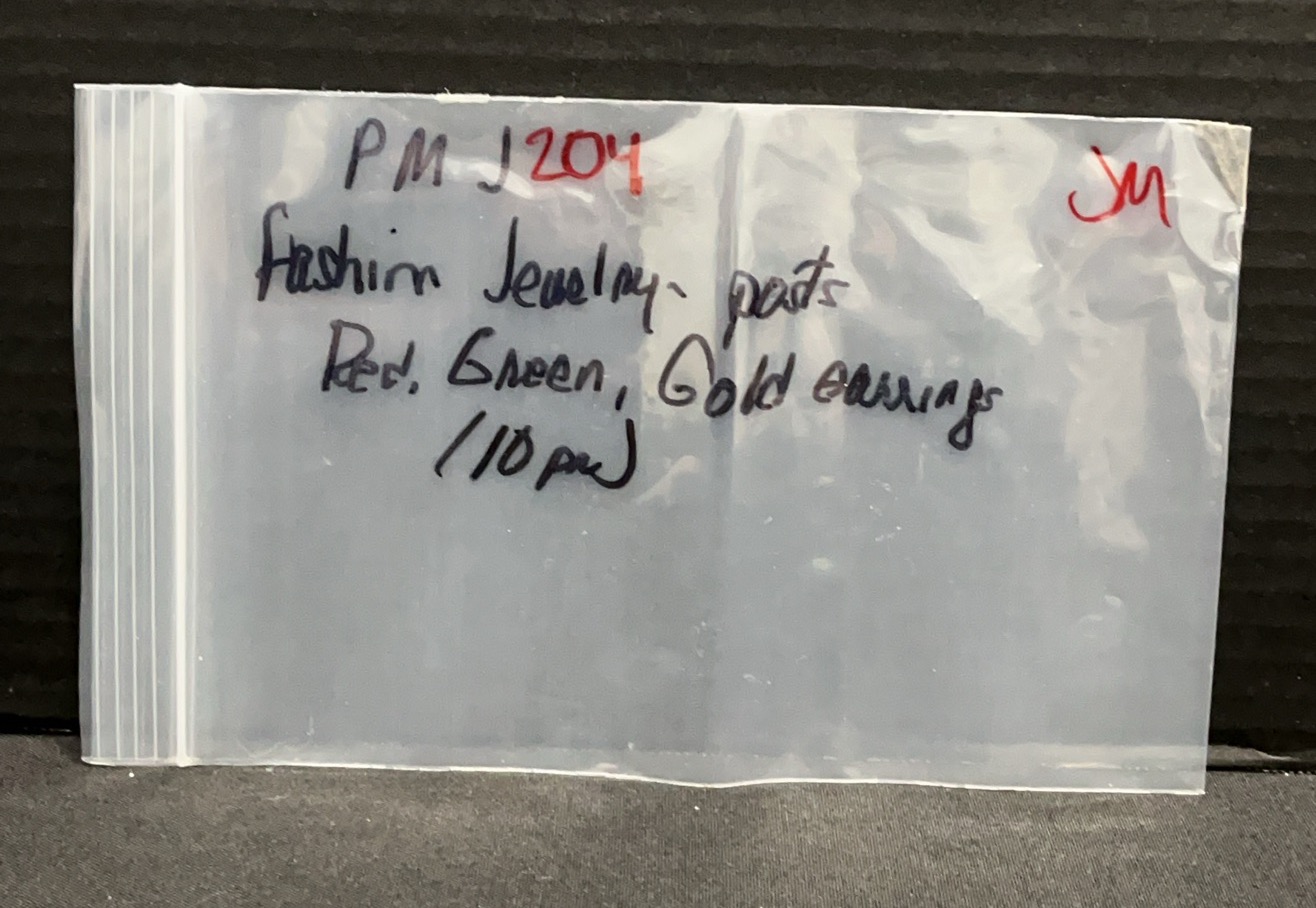 PMJ204
JM
Fashion Jewelry - posts
Red, Green, Gold earrings
(10 pr)